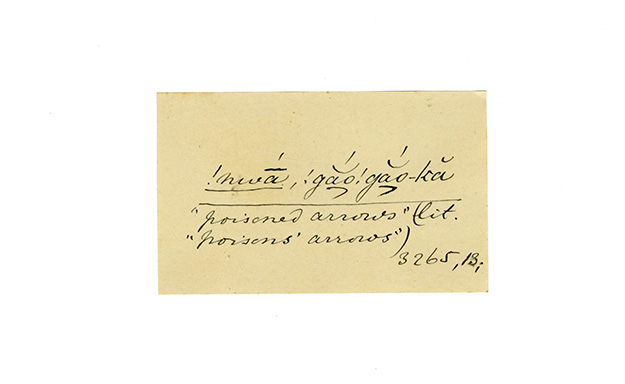 !nwā́, !gắo̮!gắo̮-kă
"poisoned arrows" (lit.
"poisons' arrows")
3265, 13;